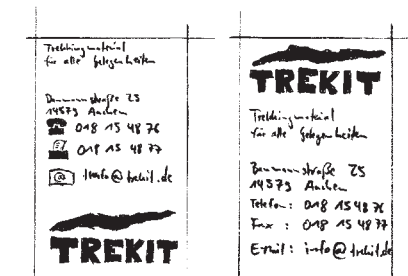 Trekkingmaterial
für alle Gelegenheiten
Baumannstraße 25
14579 Aachen
018 15 48 76
018 15 48 77
info@trekit.de
TREKIT
TREKIT
Trekkingmaterial
für alle Gelegenheiten
Baumannstraße 25
14579 Aachen
Telefon: 018 15 48 76
Fax : 018 15 48 77
Email: info@trekit.de